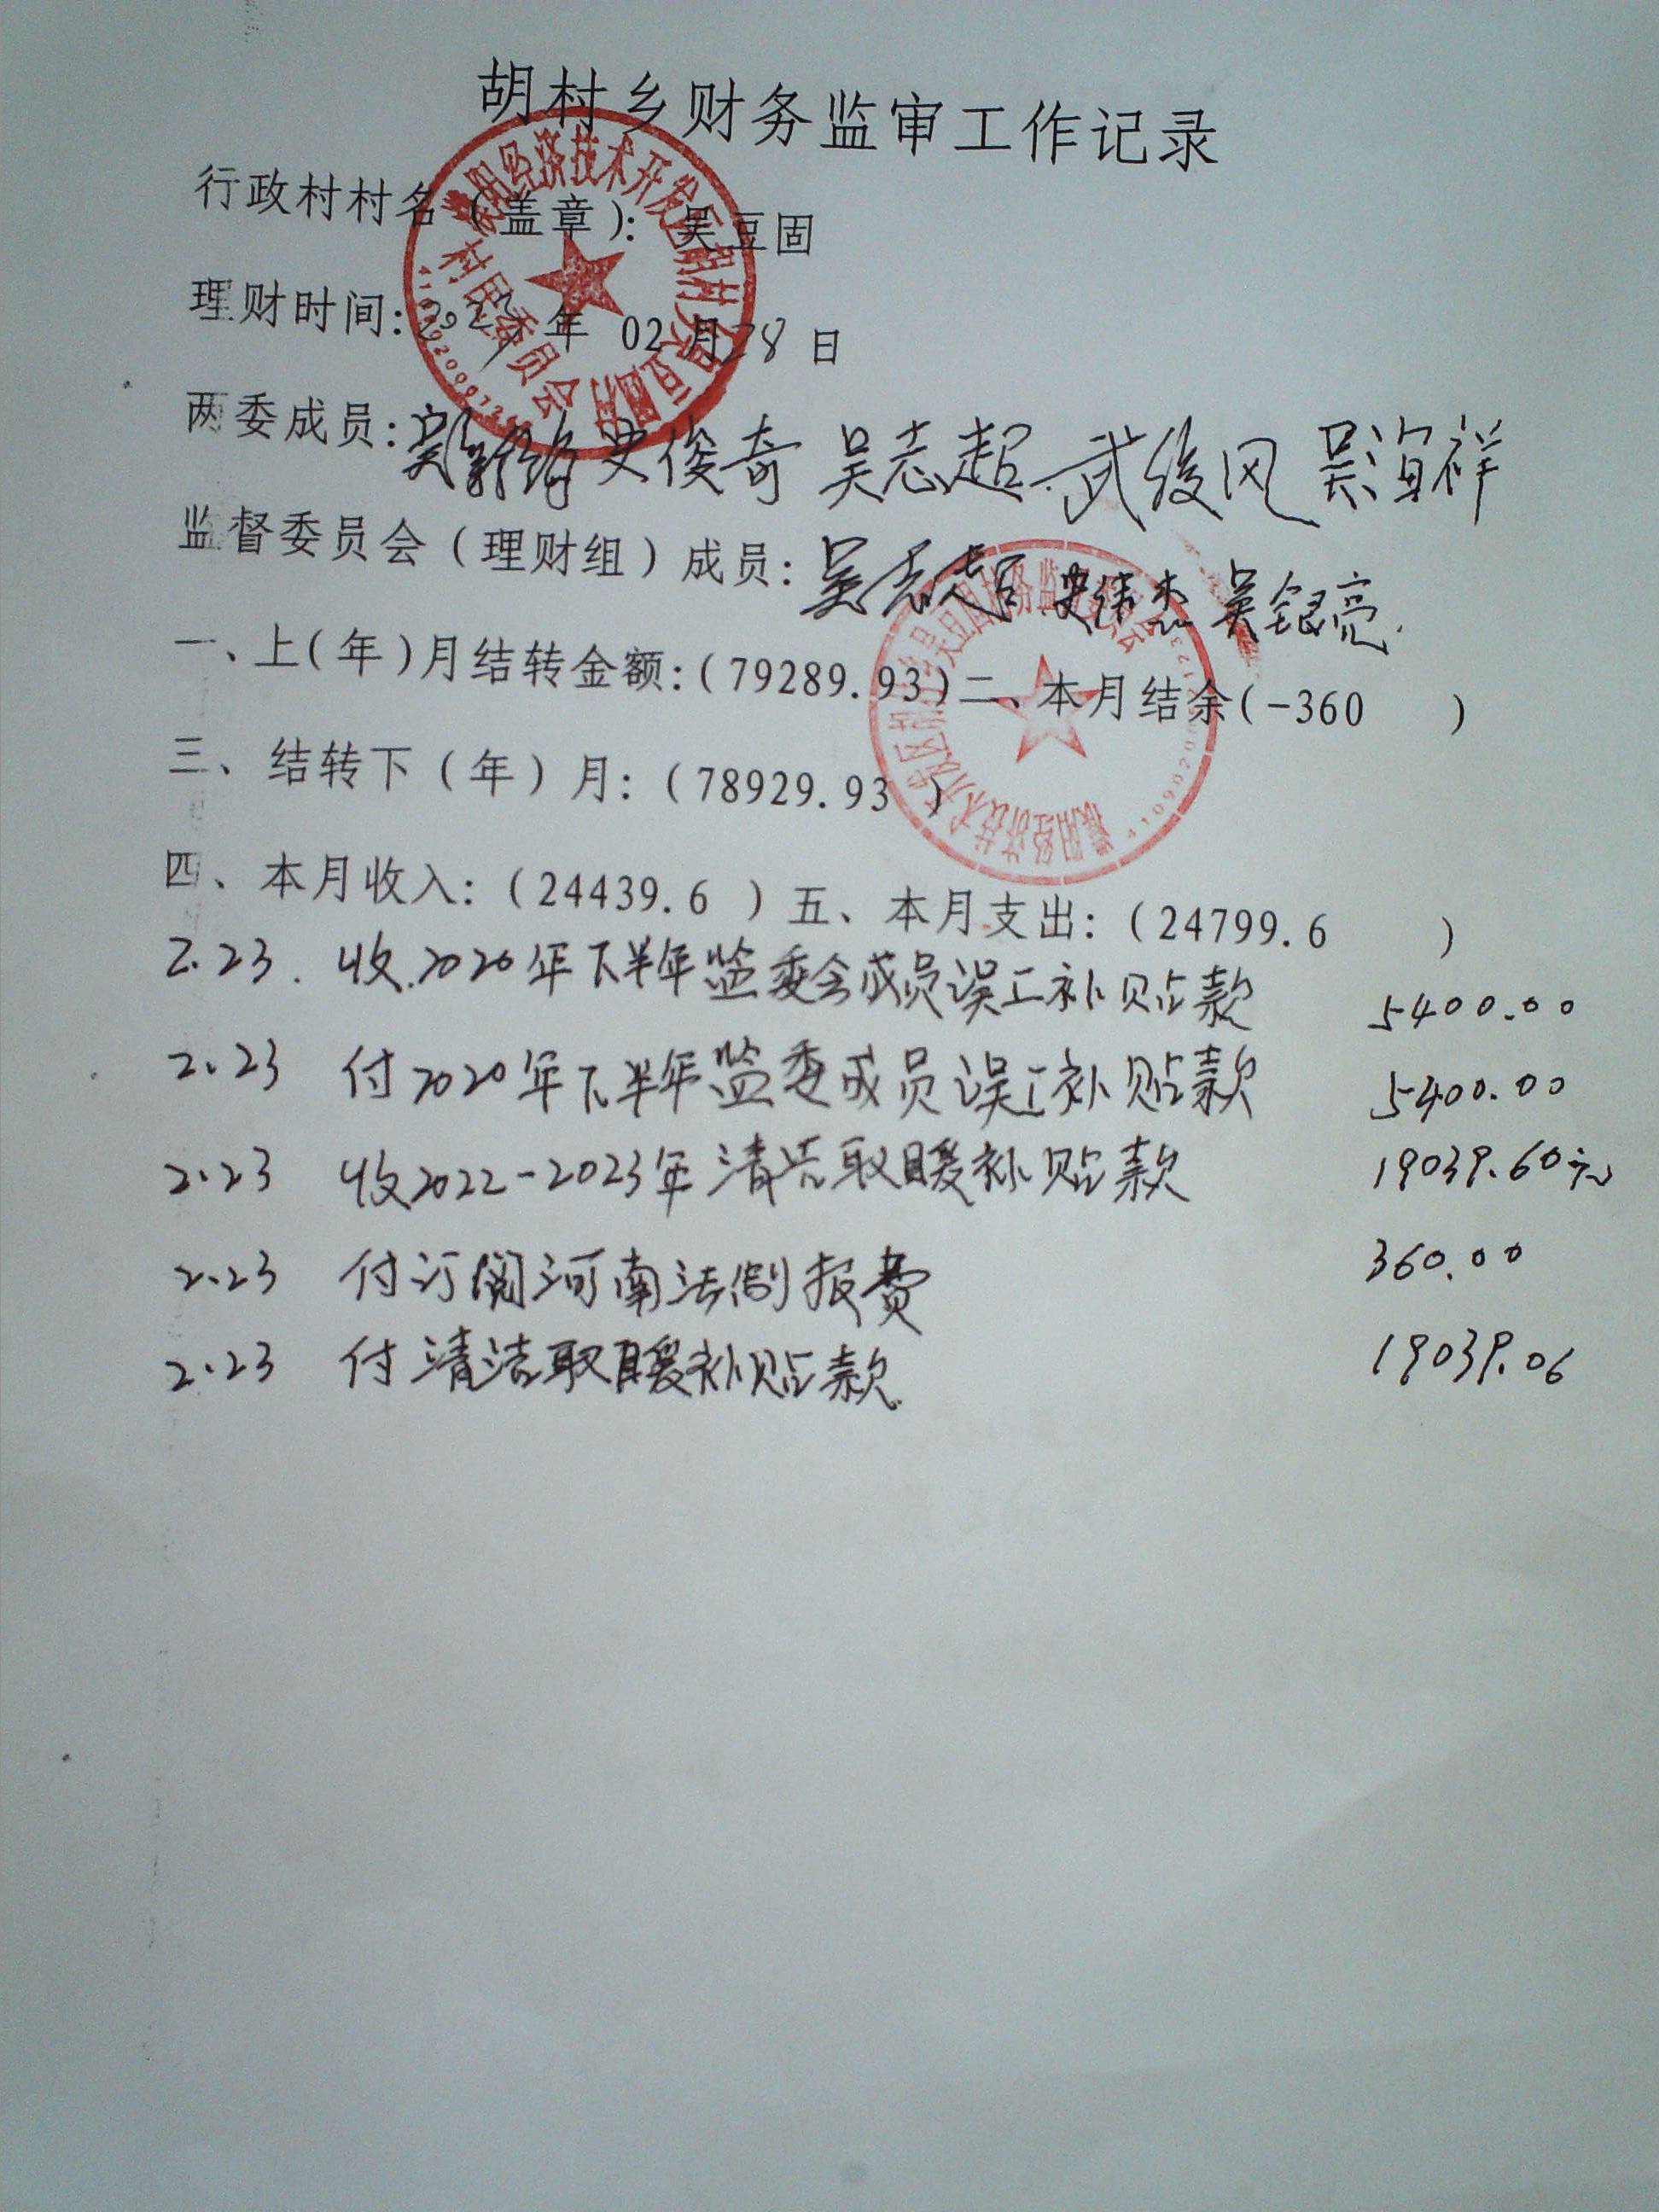 胡村乡财务监审工作记录
行政村村名(盖章): 吴豆固
理财时间: 2023年 02 月28 日
两委成员: 史俊奇 吴志超 武俊风 吴海祥
监督委员会(理财组)成员: 吴志超 史伟杰 吴银亮
一、上(年)月结转金额:(79289.93)二、本月结余(-360 )
三、结转下(年)月:(78929.93 )
四、本月收入:(24439.6 )五、本月支出:(24799.6 )
2.23. 收2020年下半年监委会成员误工补贴款 5400.00
2.23 付2020年下半年监委成员误工补贴款 5400.00
2.23 收2022-2023年清洁取暖补贴款 19039.60元
2.23 付订阅河南法制报费 360.00
2.23 付清洁取暖补贴款 19039.06
濮阳经济技术开发区胡村乡吴豆固村
村民委员会